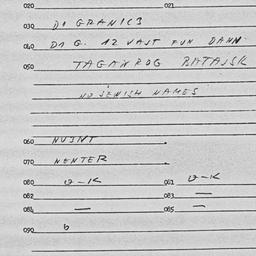 020 021
030 DI GRANICS
040 DI G. 12 VAST FUN DANN
050 TAGANROG BATAJSK
NO JEWISH NAMES
060 NUINT
070 NENTER
080 v-K 081 v-K
082 083 —
084 — 085 —
090 b